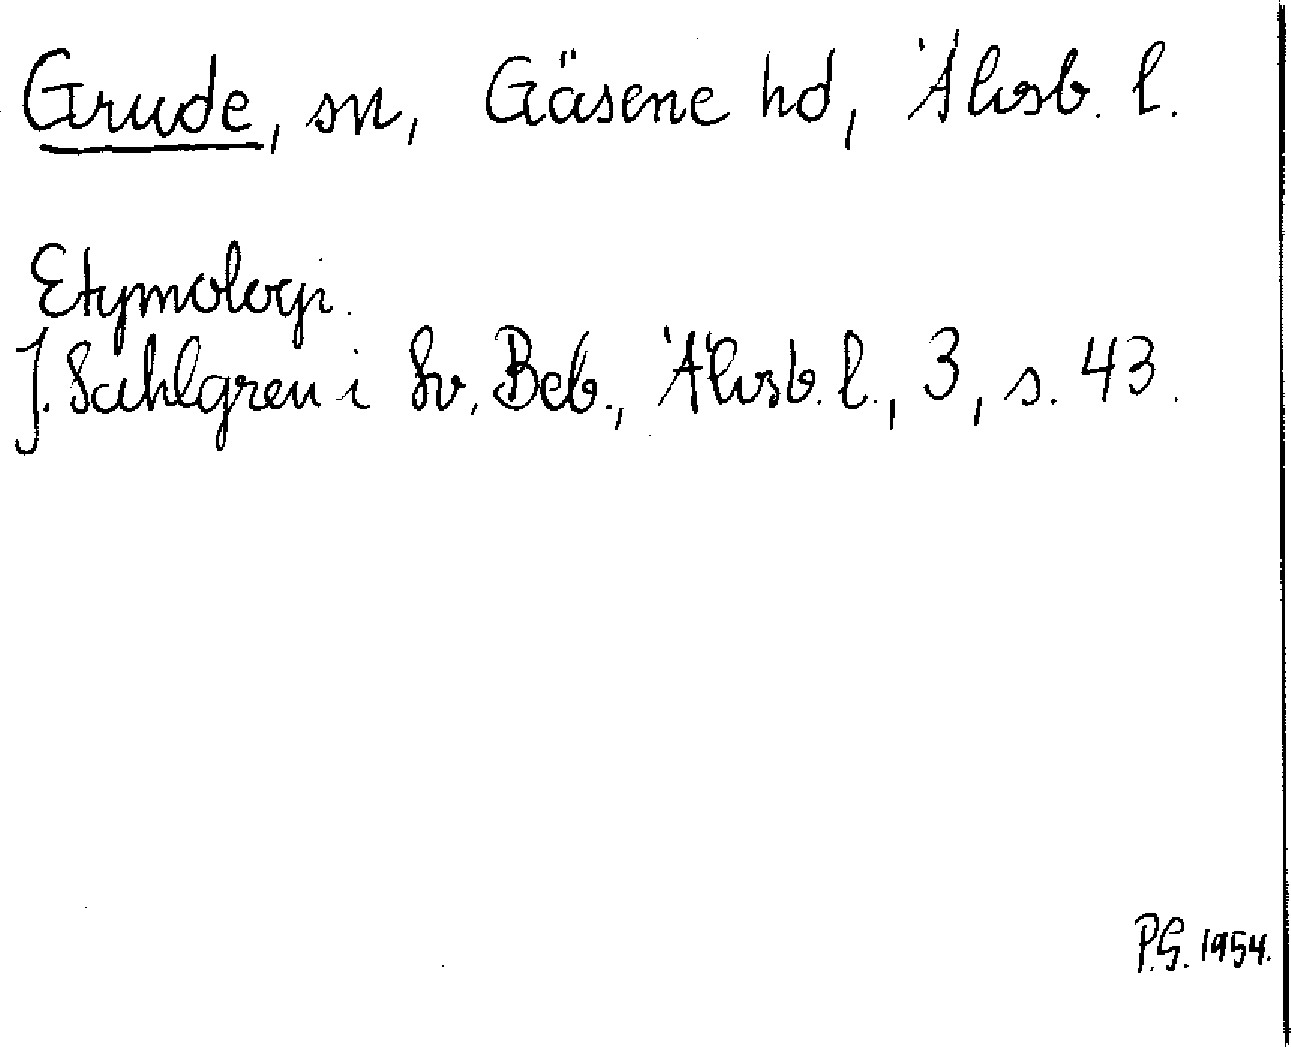 Grude, sn, Gäsene hd, Älvsb. l.
Etymologi.
J. Sahlgren i Sv. Beb., Älvsb. l., 3, s. 43.
P.G. 1954.